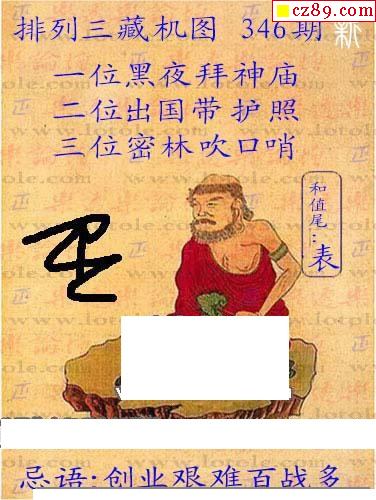 cz89.com
排列三藏机图 346期
新
一位黑夜拜神庙
二位出国带护照
三位密林吹口哨
和值尾：表
www.lotole.com
忌语:创业艰难百战多